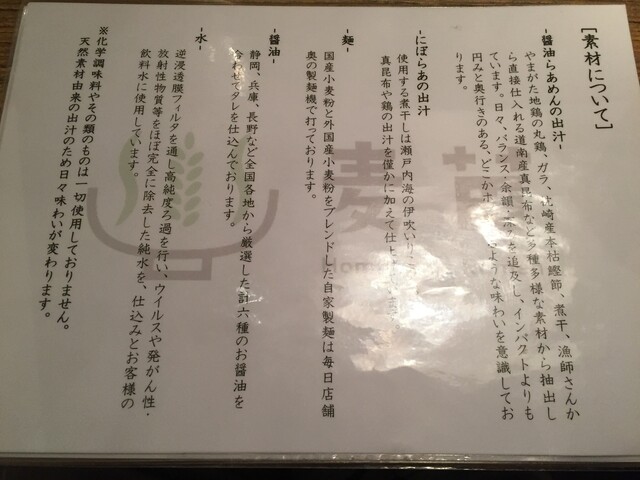 [素材について]
-醤油らあめんの出汁-
やまがた地鶏の丸鶏、ガラ、枕崎産本枯鰹節、煮干、漁師さんか
ら直接仕入れる道南産真昆布など多種多様な素材から抽出し
ています。日々、バランス・余韻・
を追及し、インパクトよりも
円みと奥行きのある、どこか
ような味わいを意識してお
ります。
-にぼらあの出汁
使用する煮干しは瀬戸内海の伊吹いりこ
真昆布や鶏の出汁を僅かに加えて仕上
ます。
-麺-
国産小麦粉と外国産小麦粉をブレンドした自家製麺は毎日店舗
奥の製麺機で打っております。
-醤油-
静岡、兵庫、長野など全国各地から厳選した計六種のお醤油を
合わせてタレを仕込んでおります。
-水-
逆浸透膜フィルタを通し高純度ろ過を行い、ウイルスや発がん性・
放射性物質等をほぼ完全に除去した純水を、仕込みとお客様の
飲料水に使用しています。
※化学調味料やその類のものは一切使用しておりません。
天然素材由来の出汁のため日々味わいが変わります。
麦苗